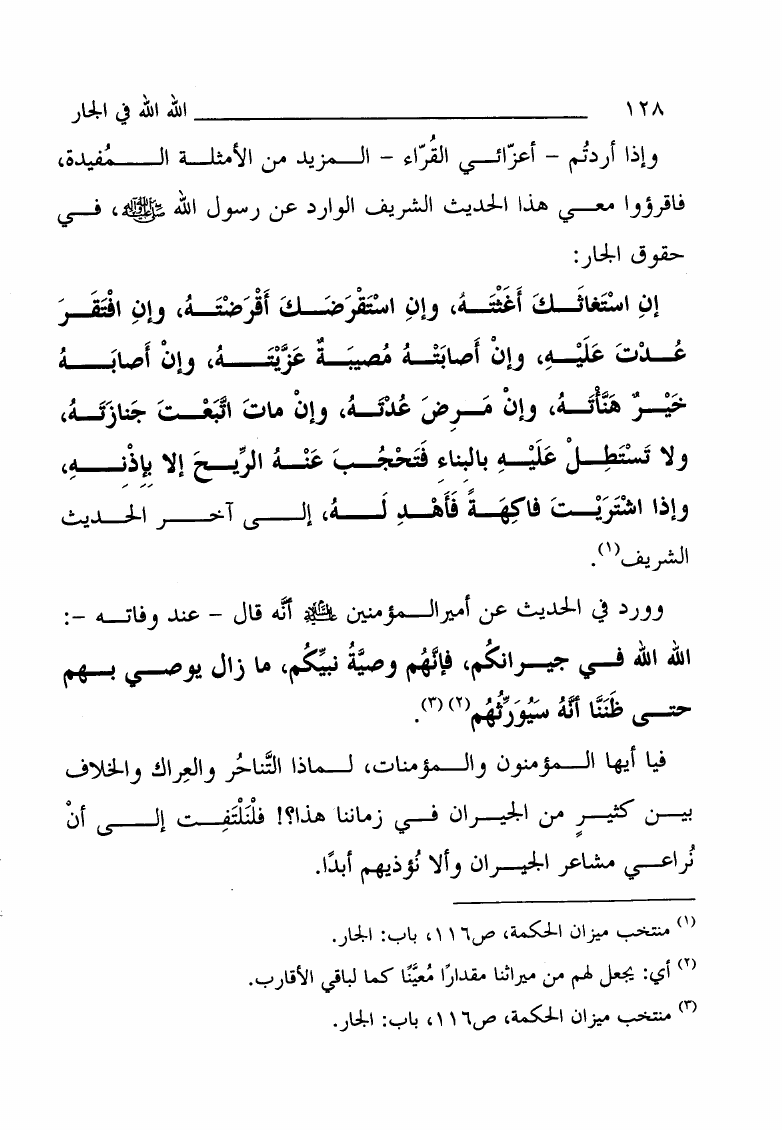 ١٢٨ الله الله في الجار
وإذا أردتُم – أعزّائي القُرّاء – المزيد من الأمثلة المُفيدة،
فاقرؤوا معي هذا الحديث الشريف الوارد عن رسول الله ﷺ، في
حقوق الجار:
إنِ اسْتَغاثَكَ أَغَثْتَهُ، وإنِ اسْتَقْرَضَكَ أَقْرَضْتَهُ، وإنِ افْتَقَرَ
عُدْتَ عَلَيْهِ، وإنْ أصابَتْهُ مُصيبَةٌ عَزَّيْتَهُ، وإنْ أصابَهُ
خَيْرٌ هَنَّأْتَهُ، وإنْ مَرِضَ عُدْتَهُ، وإنْ ماتَ اتَّبَعْتَ جَنازَتَهُ،
ولا تَسْتَطِلْ عَلَيْهِ بالبِناءِ فَتَحْجُبَ عَنْهُ الرِّيحَ إلا بِإذْنِهِ،
وإذا اشْتَرَيْتَ فاكِهَةً فَأَهْدِ لَهُ، إلى آخر الحديث
الشريف(١).
وورد في الحديث عن أمير المؤمنين عليه السلام أنَّه قال – عند وفاته –:
الله الله في جيرانكُم، فإنَّهُم وصيَّةُ نبيِّكُم، ما زال يوصي بهم
حتى ظَنَنَّا أنَّهُ سَيُوَرِّثُهُم(٢)(٣).
فيا أيها المؤمنون والمؤمنات، لماذا التَّناحُر والعِراك والخلاف
بين كثيرٍ من الجيران في زماننا هذا؟! فلْنَلْتَفِت إلى أنْ
نُراعي مشاعر الجيران وألا نُؤذيهم أبدًا.
(١) منتخب ميزان الحكمة، ص١١٦، باب: الجار.
(٢) أي: يجعل لهم من ميراثنا مقدارًا مُعيَّنًا كما لباقي الأقارب.
(٣) منتخب ميزان الحكمة، ص١١٦، باب: الجار.